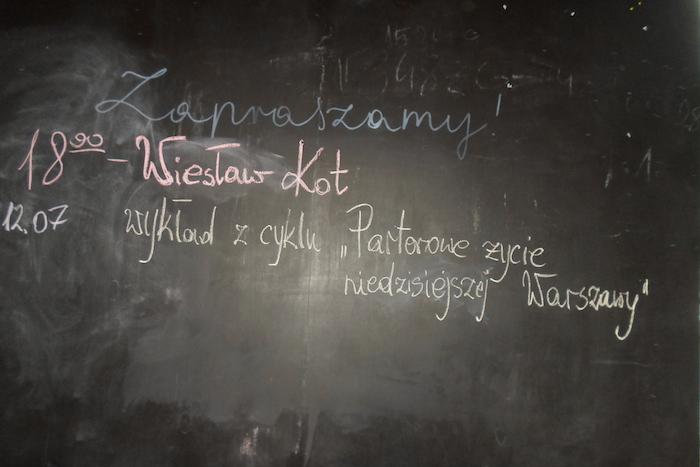 Zapraszamy!
18⁰⁰ - Wiesław Kot
12.07 wykład z cyklu „Parterowe życie
niedzisiejszej Warszawy"